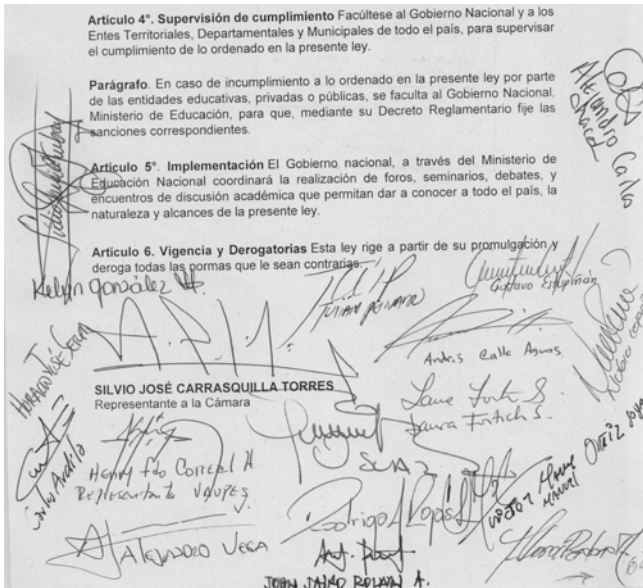 Artículo 4°. Supervisión de cumplimiento Facúltese al Gobierno Nacional y a los
Entes Territoriales, Departamentales y Municipales de todo el país, para supervisar
el cumplimiento de lo ordenado en la presente ley.
Parágrafo. En caso de incumplimiento a lo ordenado en la presente ley por parte
de las entidades educativas, privadas o públicas, se faculta al Gobierno Nacional,
Ministerio de Educación, para que, mediante su Decreto Reglamentario fije las
sanciones correspondientes.
Alejandro Carlos
Chacón
Artículo 5°. Implementación El Gobierno nacional, a través del Ministerio de
Educación Nacional coordinará la realización de foros, seminarios, debates, y
encuentros de discusión académica que permitan dar a conocer a todo el país, la
naturaleza y alcances de la presente ley.
Artículo 6. Vigencia y Derogatorias Esta ley rige a partir de su promulgación y
deroga todas las normas que le sean contrarias.
Kelyn González
Gustavo Estupiñán
Andrés Calle Aguas
SILVIO JOSÉ CARRASQUILLA TORRES
Representante a la Cámara
Laura Fortich S.
Carlos Ardila
Henry Fdo Correal H
Representante VAUPES.
Rodrigo Rojas
Victor Manuel Ortiz
ALEJANDRO VEGA
JOHN JAIRO ROLDAN A.